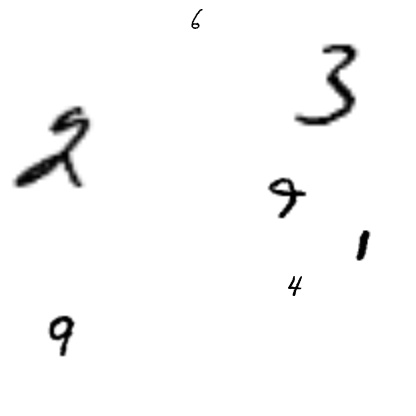 6
3
2
9
1
4
9